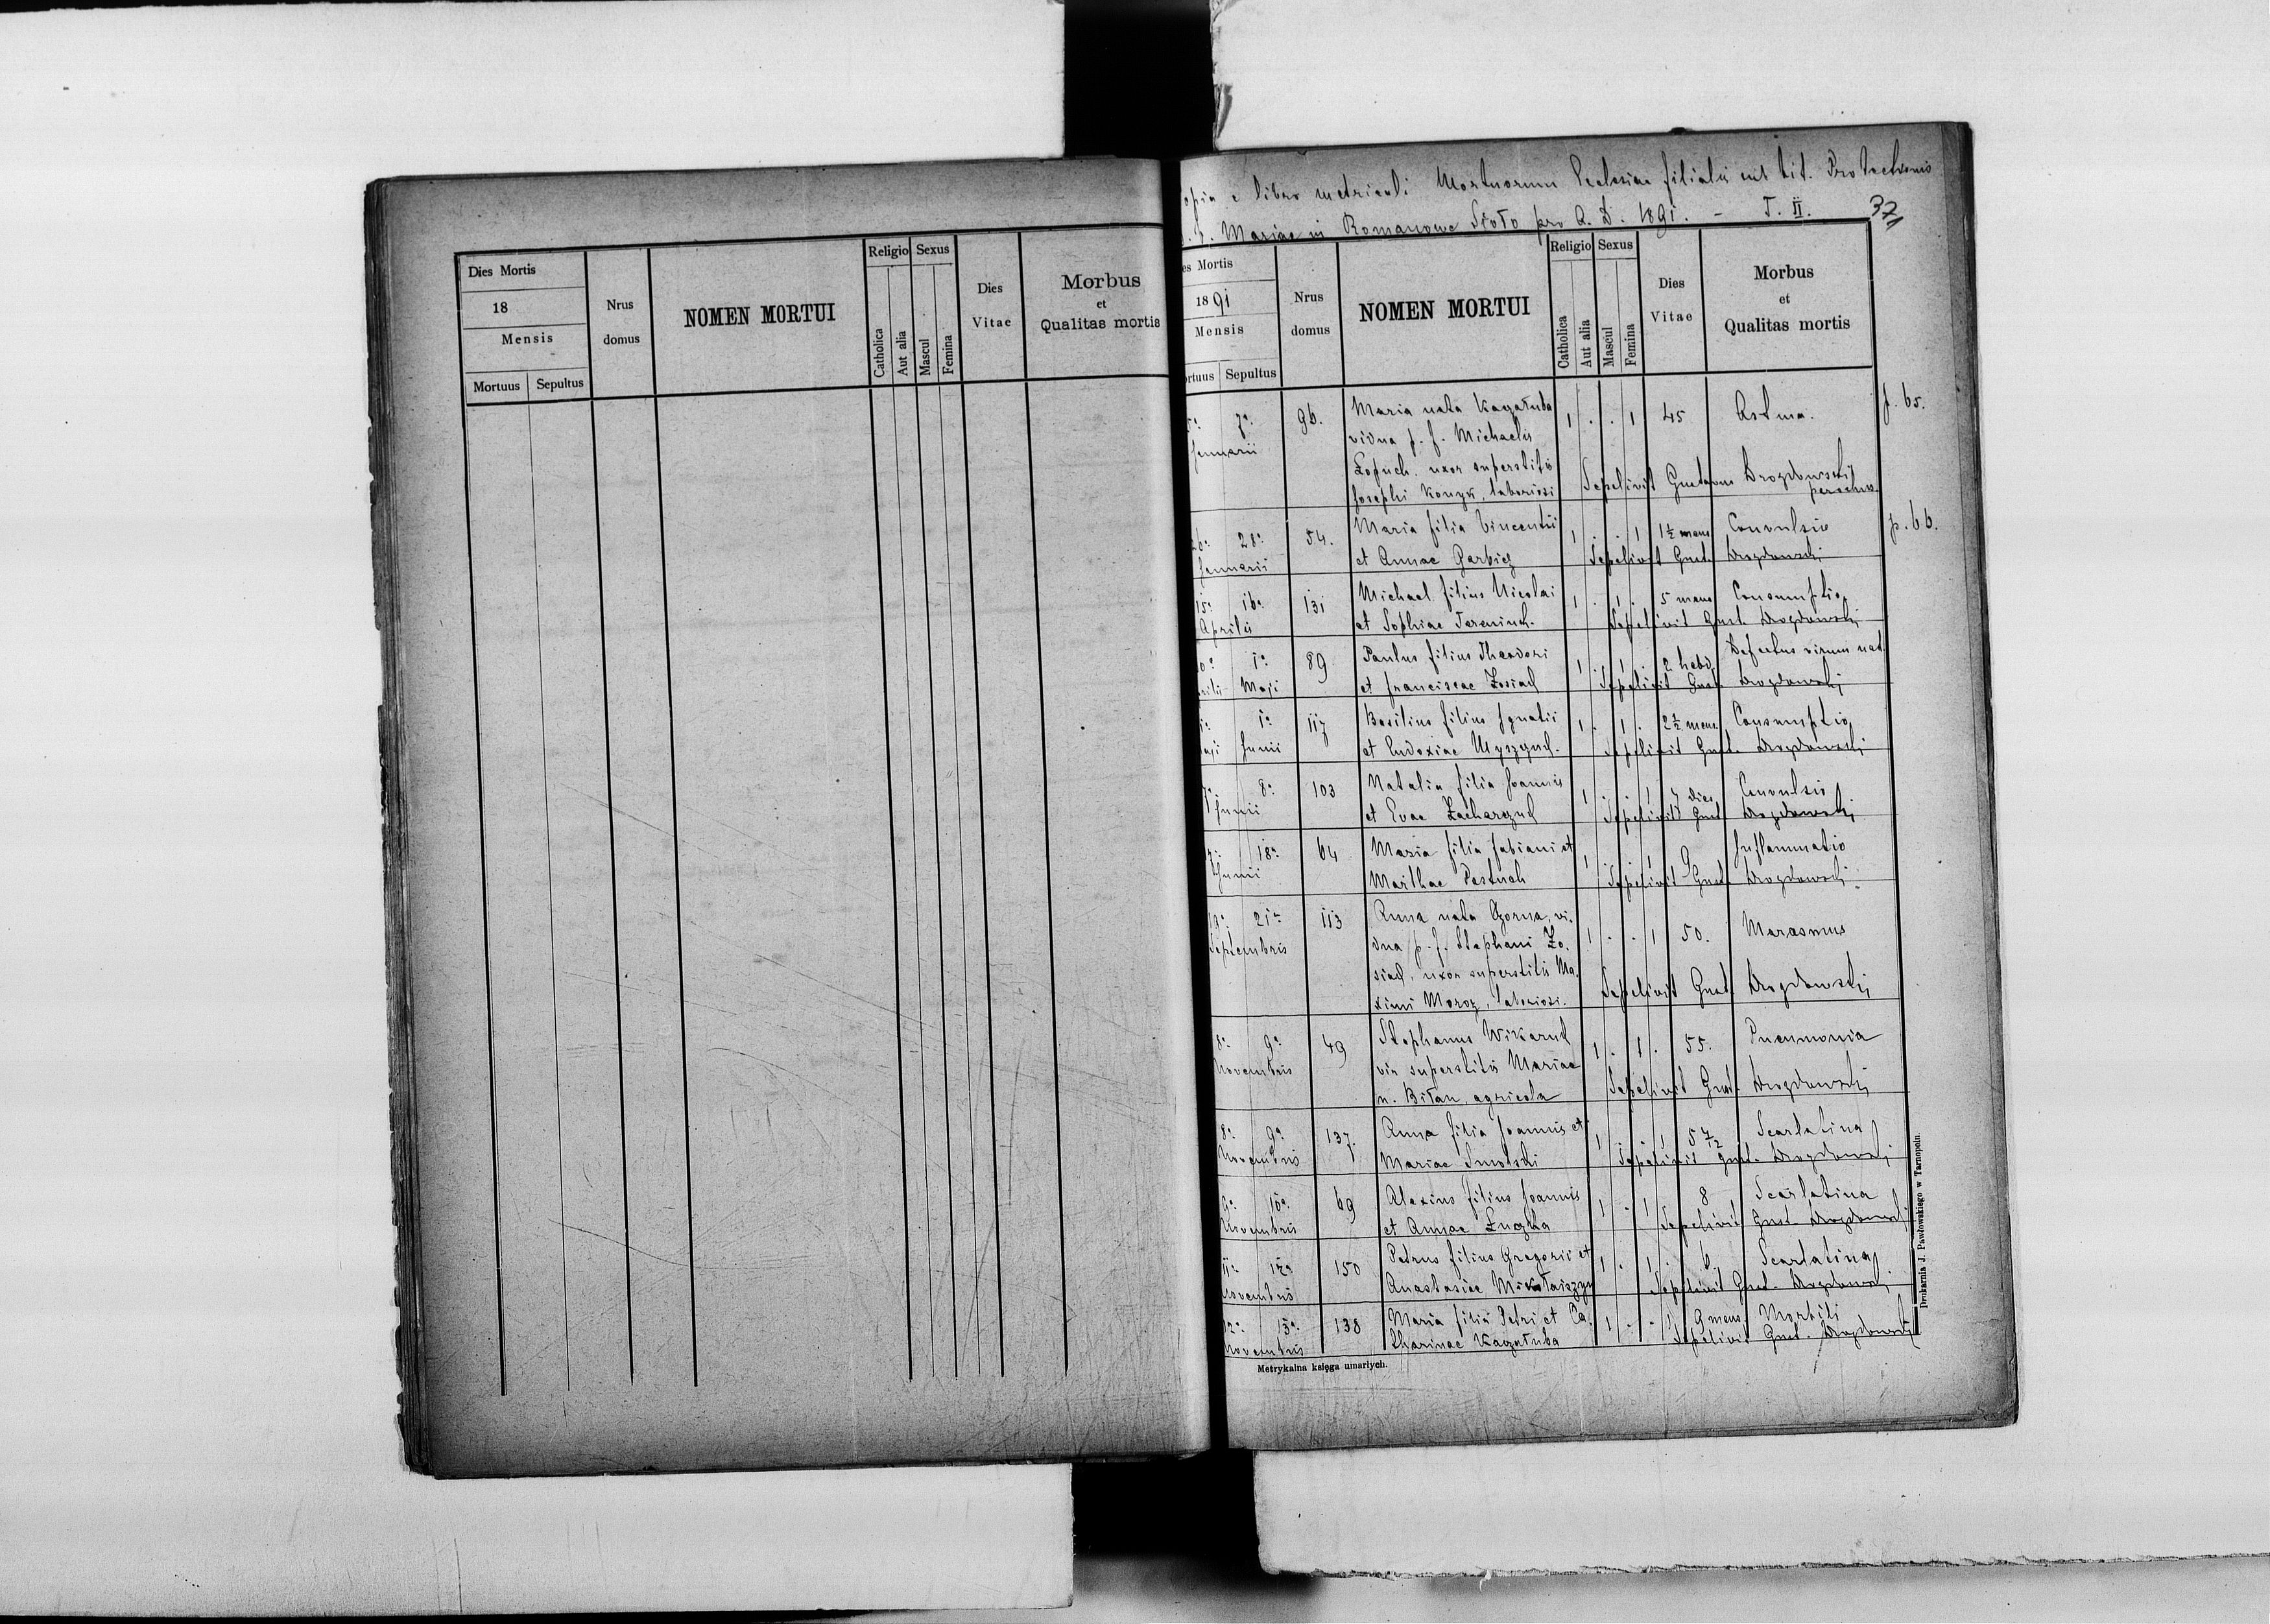 Dies Mortis
18
Mensis
Mortuus Sepultus
Nrus
domus
NOMEN MORTUI
Religio
Catholica
Aut alia
Sexus
Mascul
Femina
Dies
Vitae
Morbus
et
Qualitas mortis
opia e libro metricali Mortuorum Ecclesiae filialis sub tit. Protectionis
Mariae in Romanowe Sioło pro A. D. 1891. - T. II. 37
es Mortis
1891
Mensis
ortuus Sepultus
Nrus
domus
NOMEN MORTUI
Religio
Catholica
Aut alia
Sexus
Mascul
Femina
Dies
Vitae
Morbus
et
Qualitas mortis
7a 96. Maria nata Kagałuba 1 . . 1 45 Astma. p. 65.
Januarii vidua p. f. Michaelis
Łopuch, uxor superstitis
Josephi Konyk, laboriosi Sepelivit Gustavus Drozdowski
parochus
28a 54. Maria filia Vincentii 1 . . 1 1½ mens Convulsio p. 66.
Januarii et Annae Garbicz Sepelivit Gust. Drozdowski
15a 16a 131 Michael filius Nicolai 1 . 1 . 5 mens Consumptio
Aprilis et Sophiae Sepelivit Gust. Drozdowski
0a 1a 89 Paulus filius Theodori 1 . 1 . 2 hebd. Defectus virium nat.
rilis Maji et Franciscae Zosiach Sepelivit Gust. Drozdowski
1a 1a 117 Basilius filius Ignatii 1 . 1 . 2½ mens. Consumptio
aji Junii et Eudoxiae Sepelivit Gust. Drozdowski
7a 8a 103 Natalia filia Joannis 1 . . 1 7 dies Convulsio
Junii et Evae Zacharczuk Sepelivit Gust. Drozdowski
18a 64 Maria filia Fabiani et 1 . . 1 9 Inflammatio
Junii Marthae Pastuch Sepelivit Gust. Drozdowski
19a 21a 113 Anna nata Czorna, vi- 1 . . 1 50. Marasmus
Septembris dua p. f. Stephani Zo-
siach, uxor superstitis Ma-
ximi Moroz, laboriosi. Sepelivit Gust. Drozdowski
8a 9a 49 Stephanus Wikaruk 1 . 1 . 55. Pneumonia
Novembris vir superstitis Mariae
n. Biłan, agricola Sepelivit Gust. Drozdowski
8a 9a 137. Anna filia Joannis et 1 . . 1 5 7/12 Scarlatina
Novembris Mariae Smolski Sepelivit Gust. Drozdowski
9a 10a 69 Alexius filius Joannis 1 . 1 . 8 Scarlatina
Novembris et Annae Łuczka Sepelivit Gust. Drozdowski
11a 12a 150 Petrus filius Gregorii et 1 . 1 . 6. Scarlatina
Novembris Anastasiae Mikołaiszyn Sepelivit Gust. Drozdowski
12a 13a 138 Maria filia Petri et Ca- 1 . . 1 9 mens. Morbili
Novembris tharinae Kagałuba Sepelivit Gust. Drozdowski
Metrykalna księga umarłych.
Drukarnia J. Pawłowskiego w Tarnopolu.